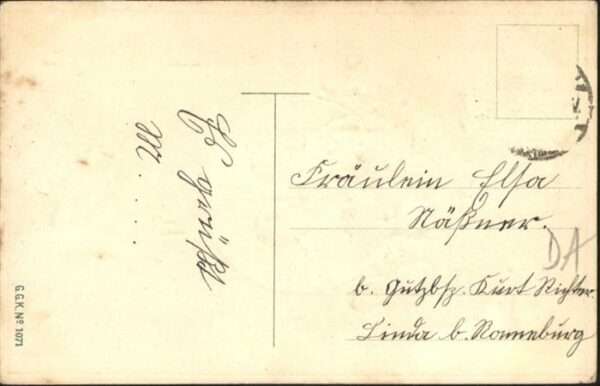 Es grüßt
M....
Fräulein Elsa
Näßner.
b. Gutzbsz. Kurt Richter.
Linda b. Ronneburg
DA
G.G.K. Nº 1071